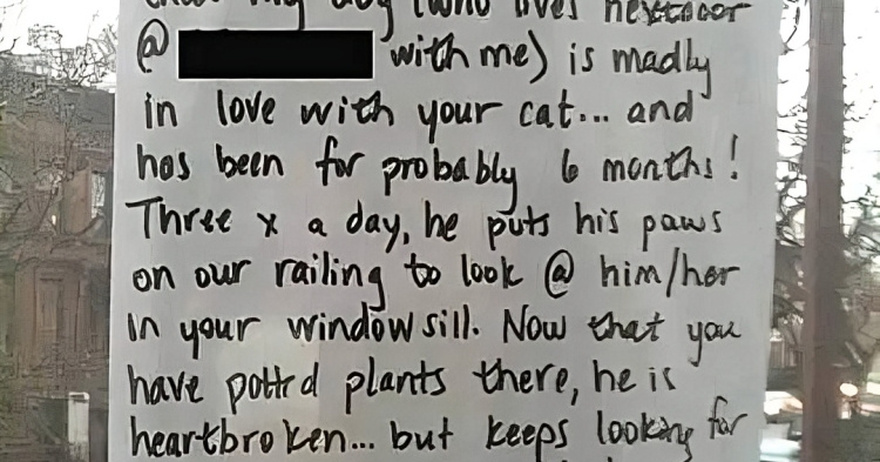 my dog (who lives nextdoor
@ with me) is madly
in love with your cat... and
has been for probably 6 months!
Three x a day, he puts his paws
on our railing to look @ him/her
in your windowsill. Now that you
have potted plants there, he is
heartbroken... but keeps looking for